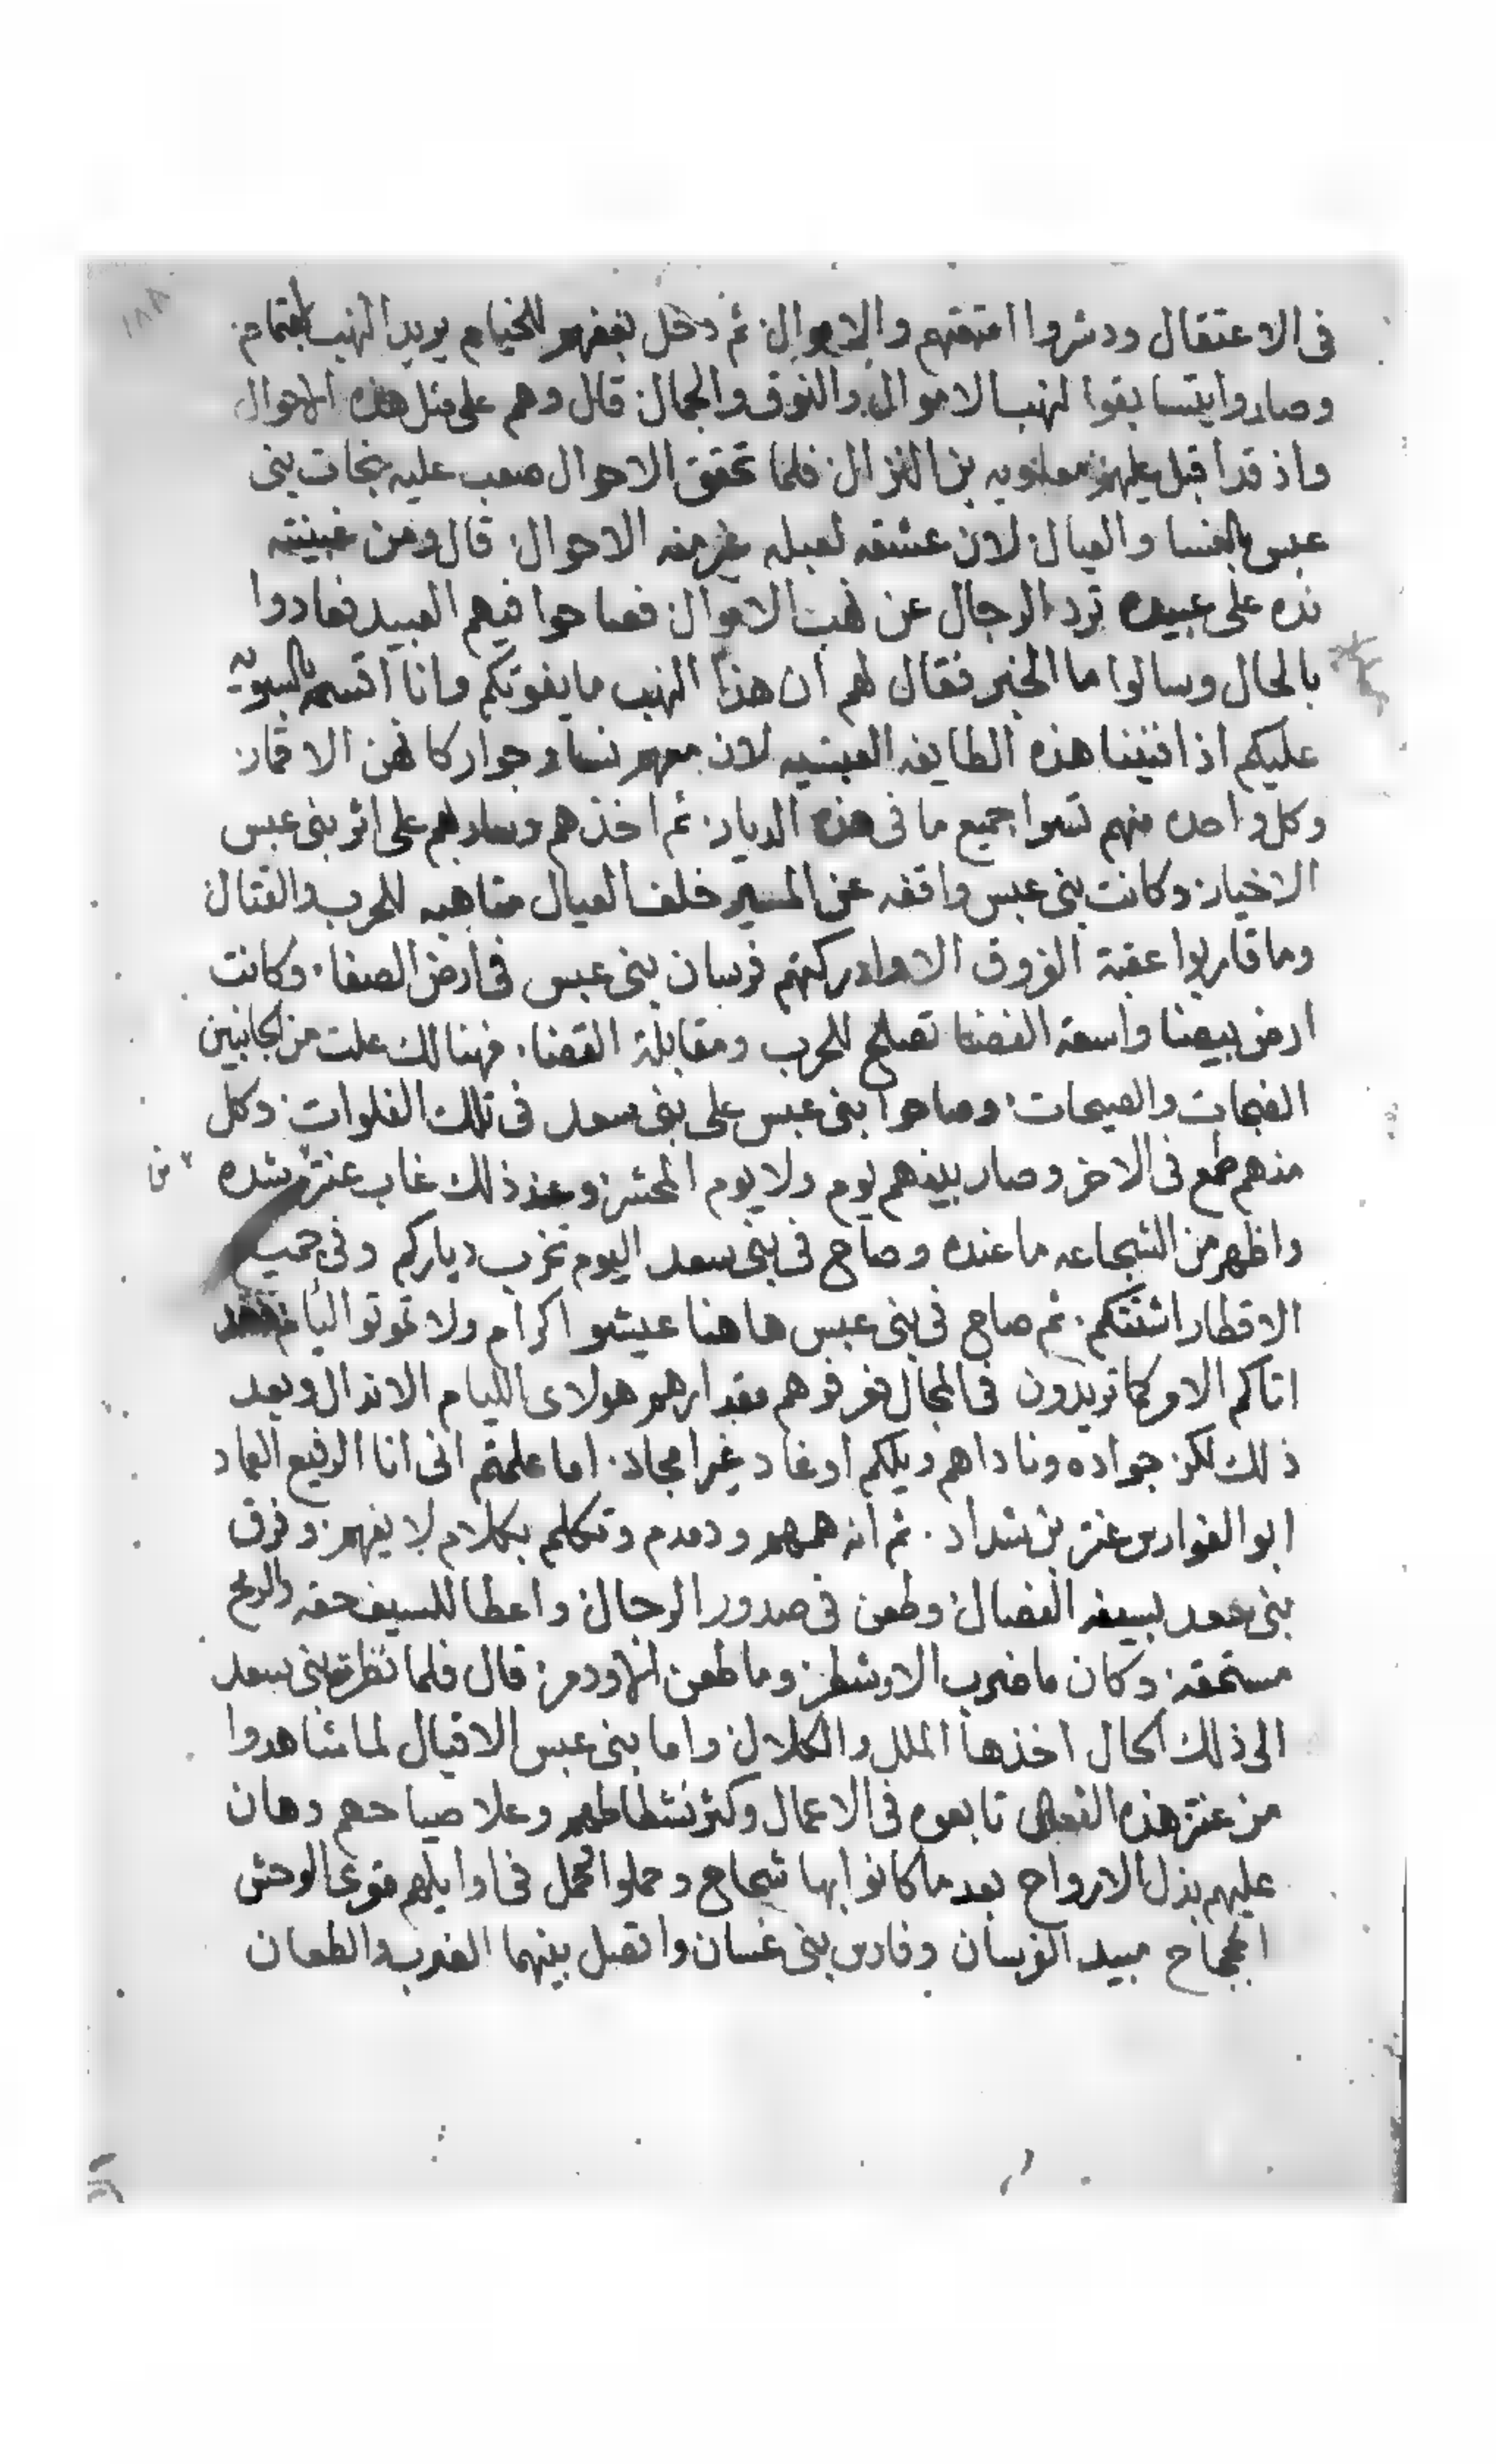 ١٨٨
فى الاعتقال ودشروا امتعتهم والاموال: ثم دخل بعضهم للخيام يريد النهب باهتمام:
وصاروا يتسابقوا لنهب الاموال: والنوق والجمال: قال وهم على مثل هذه الاحوال
واذ قد اقبل عليهم معاويه بن النزال: فلما تحقق الاحوال صعب عليه نجات بنى
عبس بالنسا والعيال: لان عشقه لعبله غير منه الاحوال: قال ومن غبينته
نده على عبيده ترد الرجال عن نهب الاموال: فصاحوا فيهم العبيد فعادوا
بالحال وسالوا ما الخبر فقال لهم ان هذا النهب ما يفوتكم وانا اقسمه بالسويه
عليكم اذا فنينا هذه الطايفه العبسيه لان معهم نسا وجوار كانهن الاقمار:
وكل واحده منهم تسوا جميع ما فى هذه الديار: ثم اخذهم وسار بهم على اثر بنى عبس
الاخيار: وكانت بنى عبس واقفه عن المسير خلف العيال متاهبه للحرب والقتال
وما قاربوا عقبة الزوق الا وادركتهم فرسان بنى عبس فى ارض الصفا: وكانت
ارض بيضا واسعة الفضا تصلح للحرب ومقابلة القضا: فهنالك علت من الجانبين
الضجات والصيحات: وصاحوا بنى عبس على بنى سعد فى تلك الفلوات: وكل
منهم طمع فى الاخر وصار بينهم يوم ولا يوم المحشر: وعند ذلك غاب عنتر رشده
واظهر من الشجاعه ما عنده وصاح فى بنى سعد اليوم تخرب دياركم وفى جميع
الاقطار اشتتكم: ثم صاح فى بنى عبس هاهنا عيشوا كرام ولا تموتوا ليام فقد
اتاكم الامر كما تريدون فى المجال فعرفوهم مقدارهم هولاى الليام الاندال وبعد
ذلك لكز جواده وناداهم ويلكم اوغاد غير امجاد: اما علمتم انى انا الرفيع العماد
ابو الفوارس عنتر بن شداد: ثم انه همهم ودمدم وتكلم بكلام لا يفهم: وفرق
بنى سعد بسيفه الفصال: وطعن فى صدور الرجال: واعطا للسيف حقه والرمح
مستحقه: وكان ما ضرب الا وشطر: وما طعن الا ودمر: قال فلما نظرت بنى سعد
الى ذلك الحال اخذها الملل والكلال: واما بنى عبس الاقيال لما شاهدوا
من عنتر هذه الفعال تابعوه فى الاعمال وكثر نشطاطهم وعلا صياحهم وهان
عليهم بذل الارواح بعد ما كانوا بها شحاح وحملوا الحمل فى اوايلهم مقرى الوحش
الجحجاح مبيد الفرسان وفارس بنى غسان واتصل بينهما الضرب والطعان